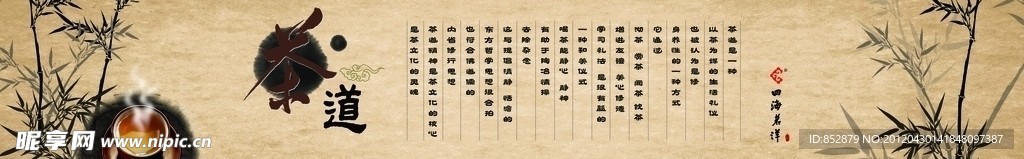 茶
道
茶道是一种
以茶为媒的生活礼仪
也被认为是修
身养性的一种方式
它通过
沏茶 赏茶 闻茶 饮茶
增进友谊 美心修德
学习礼法 是很有益的
一种和美仪式
喝茶能静心 静神
有助于陶冶情操
去除杂念
这与提倡清静 恬澹的
东方哲学思想很合拍
也符合佛道儒的
内省修行思想
茶道精神是茶文化的核心
是茶文化的灵魂
四海茗洋
昵享网 www.nipic.cn
ID:852879 NO:20120430141848097387